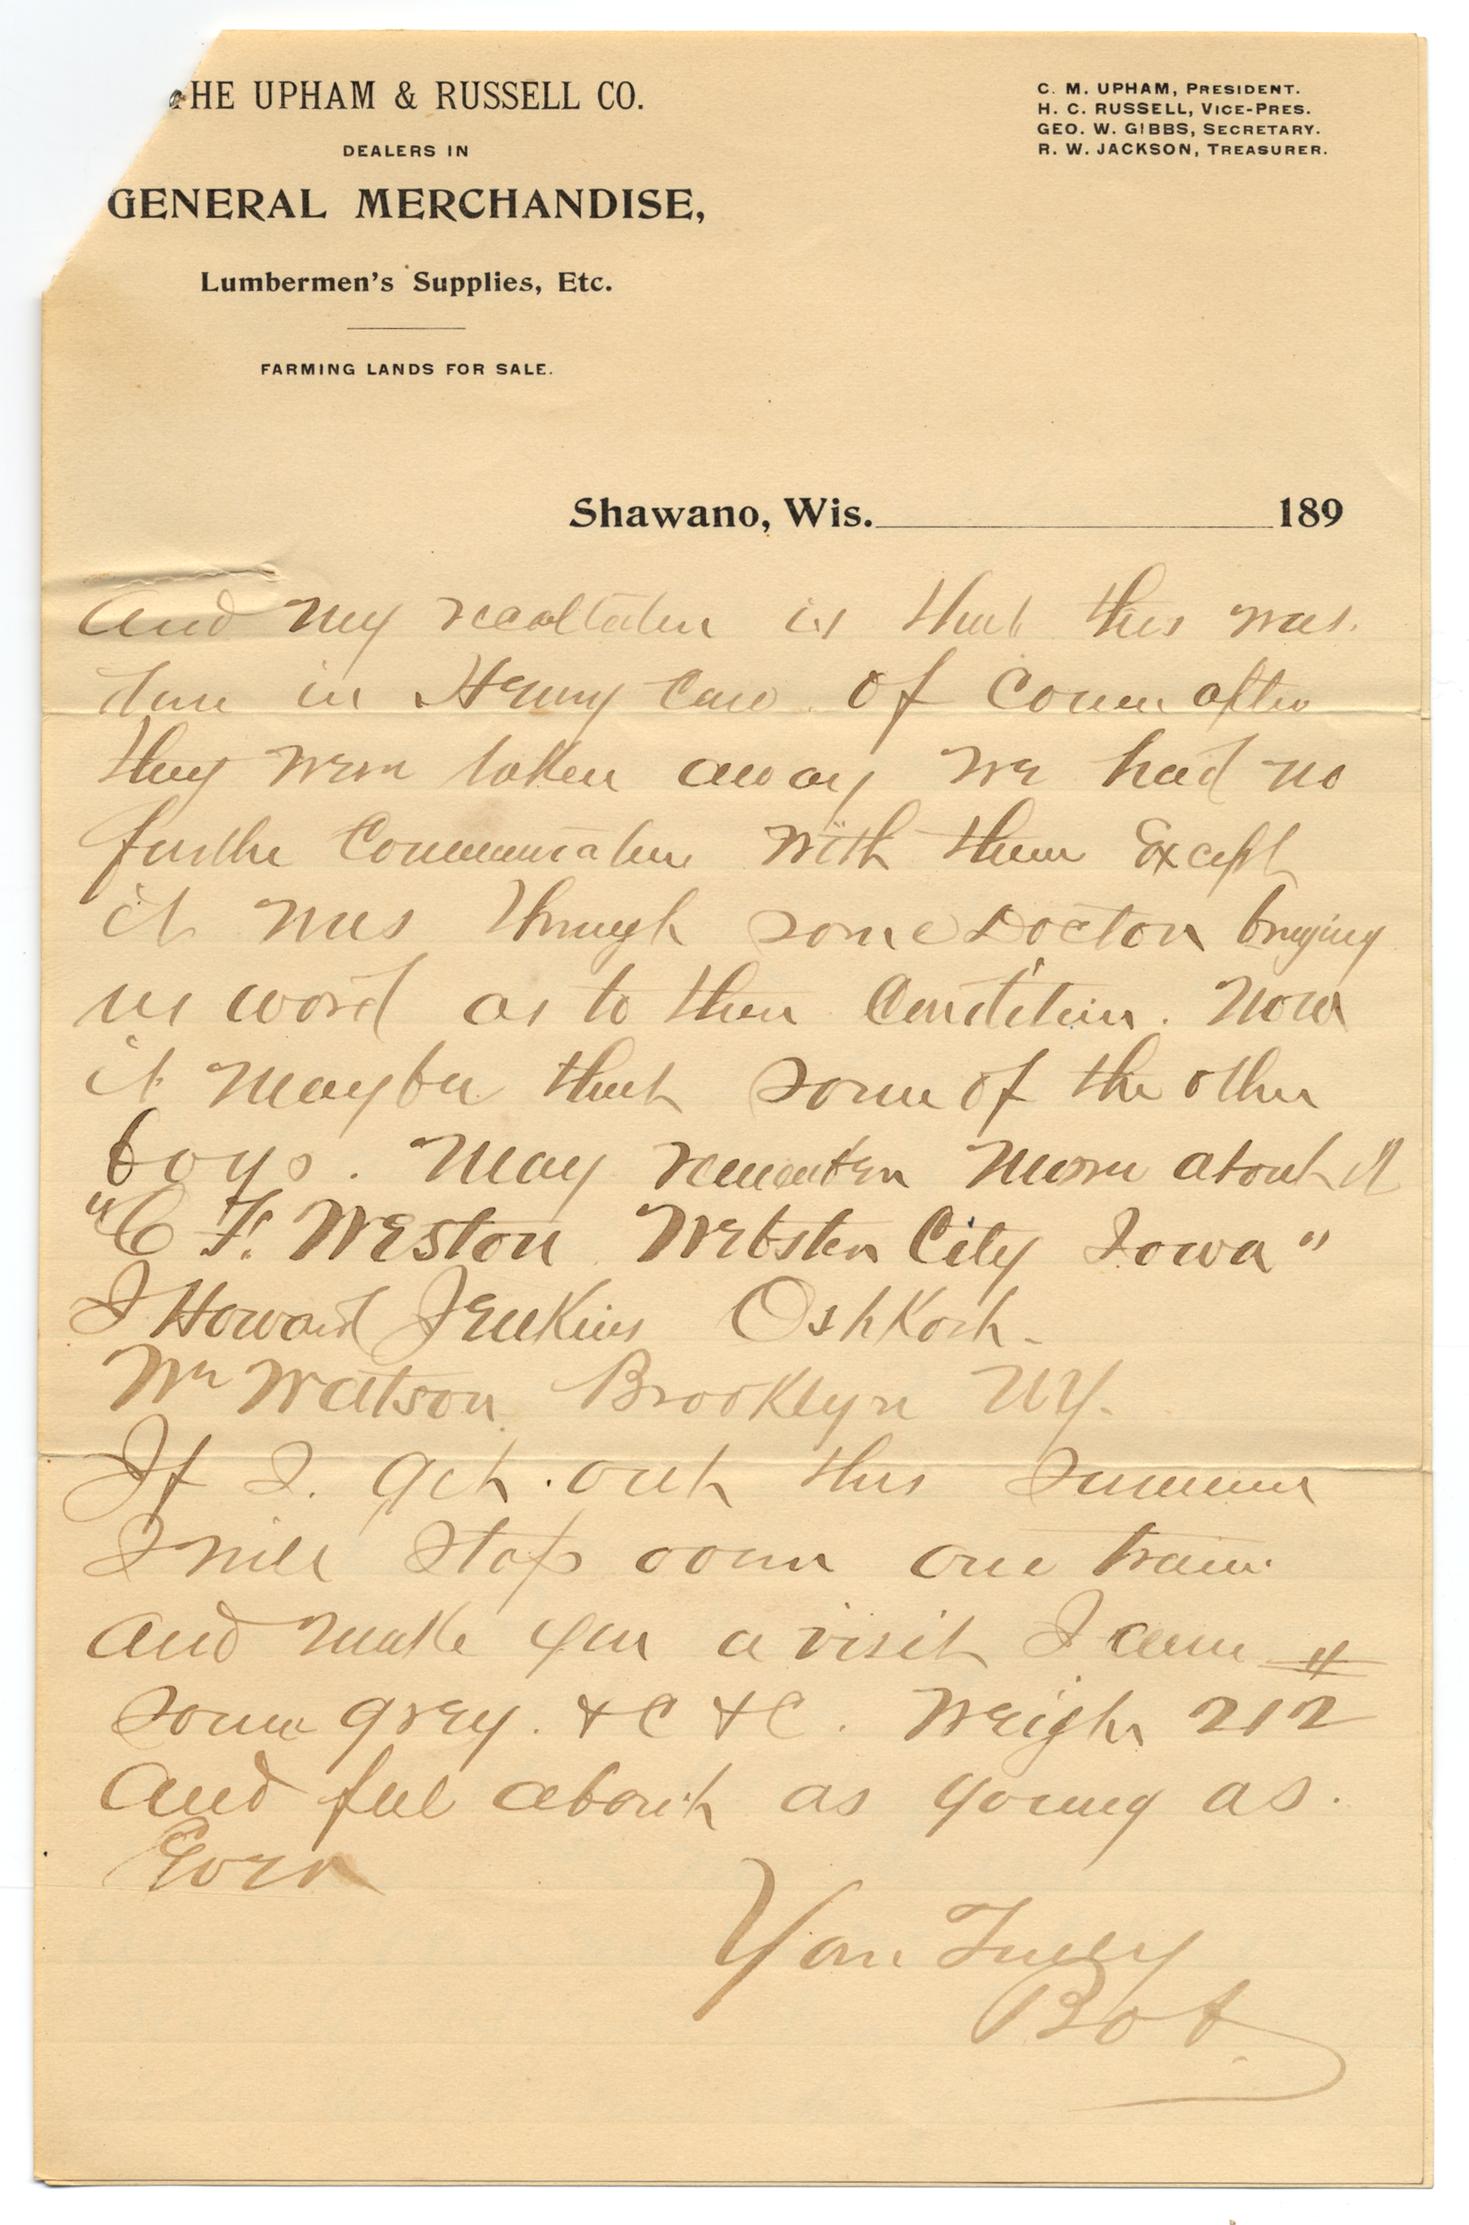 THE UPHAM & RUSSELL CO.
DEALERS IN
GENERAL MERCHANDISE,
Lumbermen's Supplies, Etc.
FARMING LANDS FOR SALE.
C. M. UPHAM, PRESIDENT.
H. C. RUSSELL, VICE-PRES.
GEO. W. GIBBS, SECRETARY.
R. W. JACKSON, TREASURER.
Shawano, Wis. 189
and my recollection is that this was
done in Henry Case. Of Course after
they were taken away we had no
further Communication with them Except
it was through some Doctor bringing
us word as to their Condition. Now
it may be that some of the other
boys. May remember more about it
"C F. Weston Webster City Iowa"
J Howard Jenkins Oshkosh.
Wm Watson Brooklyn NY.
If I. get. out this Summer
I will stop over one train
and make you a visit I am
some grey. &C &C. Weigh 212 #
and feel about as young as.
Ever
Your Truly
Bob